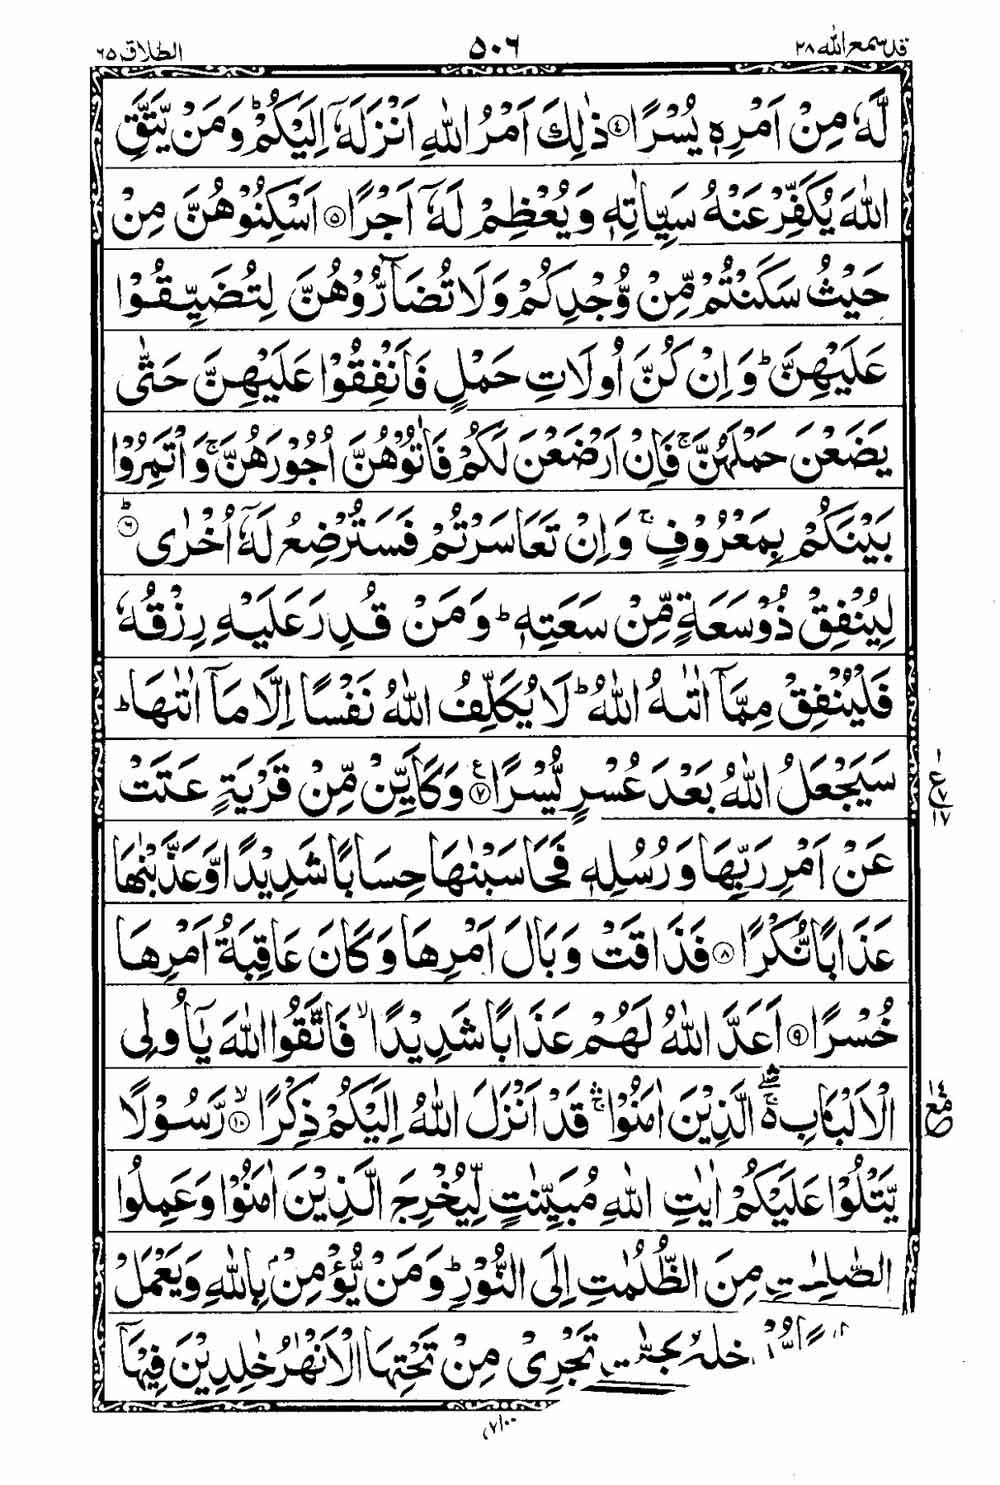 قد سمع الله ٢٨ ٥٠٦ الطلاق ٦٥
لَّهٗ مِنْ اَمْرِهٖ يُسْرًا ۝٤ ذٰلِكَ اَمْرُ اللّٰهِ اَنْزَلَهٗۤ اِلَيْكُمْ ؕ وَمَنْ يَّتَّقِ
اللّٰهَ يُكَفِّرْ عَنْهُ سَيِّاٰتِهٖ وَيُعْظِمْ لَهٗۤ اَجْرًا ۝٥ اَسْكِنُوْهُنَّ مِنْ
حَيْثُ سَكَنْتُمْ مِّنْ وُّجْدِكُمْ وَلَا تُضَآرُّوْهُنَّ لِتُضَيِّقُوْا
عَلَيْهِنَّ ؕ وَاِنْ كُنَّ اُولَاتِ حَمْلٍ فَاَنْفِقُوْا عَلَيْهِنَّ حَتّٰى
يَضَعْنَ حَمْلَهُنَّ ۚ فَاِنْ اَرْضَعْنَ لَكُمْ فَاٰتُوْهُنَّ اُجُوْرَهُنَّ ۚ وَاْتَمِرُوْا
بَيْنَكُمْ بِمَعْرُوْفٍ ۚ وَاِنْ تَعَاسَرْتُمْ فَسَتُرْضِعُ لَهٗۤ اُخْرٰى ۝٦ؕ
لِيُنْفِقْ ذُوْ سَعَةٍ مِّنْ سَعَتِهٖ ؕ وَمَنْ قُدِرَ عَلَيْهِ رِزْقُهٗ
فَلْيُنْفِقْ مِمَّاۤ اٰتٰىهُ اللّٰهُ ؕ لَا يُكَلِّفُ اللّٰهُ نَفْسًا اِلَّا مَاۤ اٰتٰىهَا ؕ
سَيَجْعَلُ اللّٰهُ بَعْدَ عُسْرٍ يُّسْرًا ۝٧ع وَكَاَيِّنْ مِّنْ قَرْيَةٍ عَتَتْ
١ ع ٧ ١٧
عَنْ اَمْرِ رَبِّهَا وَرُسُلِهٖ فَحَاسَبْنٰهَا حِسَابًا شَدِيْدًا وَّعَذَّبْنٰهَا
عَذَابًا نُّكْرًا ۝٨ فَذَاقَتْ وَبَالَ اَمْرِهَا وَكَانَ عَاقِبَةُ اَمْرِهَا
خُسْرًا ۝٩ اَعَدَّ اللّٰهُ لَهُمْ عَذَابًا شَدِيْدًا ۙ فَاتَّقُوا اللّٰهَ يٰۤاُولِى
الْاَلْبَابِ ۛۚ الَّذِيْنَ اٰمَنُوْا ۛؕ قَدْ اَنْزَلَ اللّٰهُ اِلَيْكُمْ ذِكْرًا ۝١٠ۙ رَّسُوْلًا
مع ١٤
يَّتْلُوْا عَلَيْكُمْ اٰيٰتِ اللّٰهِ مُبَيِّنٰتٍ لِّيُخْرِجَ الَّذِيْنَ اٰمَنُوْا وَعَمِلُوا
الصّٰلِحٰتِ مِنَ الظُّلُمٰتِ اِلَى النُّوْرِ ؕ وَمَنْ يُّؤْمِنْۢ بِاللّٰهِ وَيَعْمَلْ
جَنّٰتٍ تَجْرِىْ مِنْ تَحْتِهَا الْاَنْهٰرُ خٰلِدِيْنَ فِيْهَاۤ